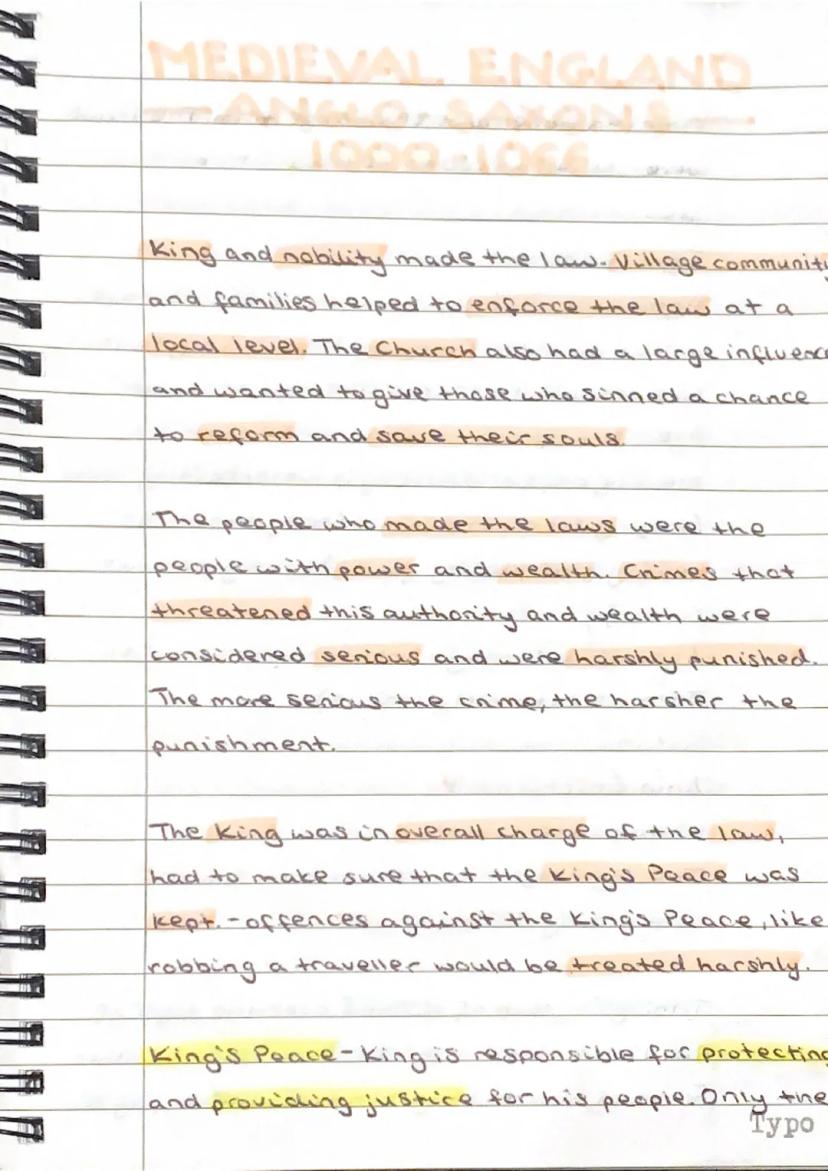 MEDIEVAL ENGLAND
— ANGLO SAXONS —
1000-1066
King and nobility made the law. Village communit
and families helped to enforce the law at a
local level. The Church also had a large influenc
and wanted to give those who sinned a chance
to reform and save their souls.
The people who made the laws were the
people with power and wealth. Crimes that
threatened this authority and wealth were
considered serious and were harshly punished.
The more serious the crime, the harsher the
punishment.
The King was in overall charge of the law,
had to make sure that the King's Peace was
kept. - offences against the King's Peace, like
robbing a traveller would be treated harshly.
King's Peace - King is responsible for protecting
and providing justice for his people. Only the
Typo